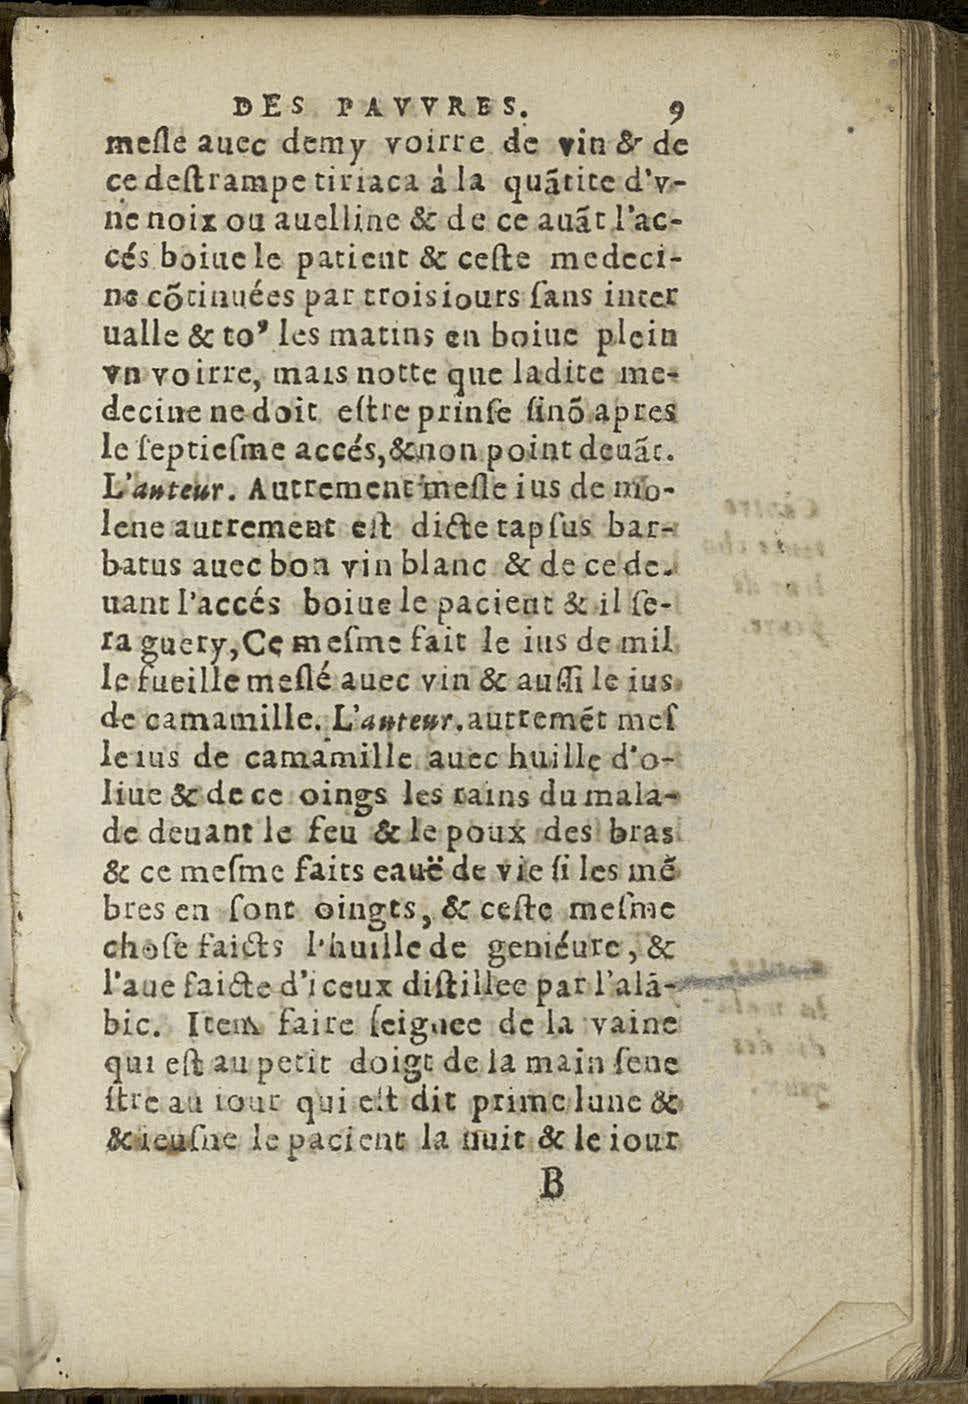 DES PAVVRES. 9
meſle auec demy voirre de vin & de
ce deſtrampe tiriaca à la quãtite d'v-
ne noix ou auelline & de ce auãt l'ac-
cés boiue le patient & ceſte medeci-
ne cõtinuées par trois iours ſans inter
ualle & to⁹ les matins en boiue plein
vn voirre, mais notte que ladite me-
decine ne doit eſtre prinſe ſinõ apres
le ſeptieſme accés, & non point deuãt.
L'auteur. Autrement meſle ius de mo-
lene autrement eſt dicte tapſus bar-
batus auec bon vin blanc & de ce de-
uant l'accés boiue le pacient & il ſe-
ra guery, Ce meſme fait le ius de mil
le fueille meſlé auec vin & auſſi le ius
de camamille. L'auteur. autremẽt meſ
le ius de camamille auec huille d'o-
liue & de ce oings les rains du mala-
de deuant le feu & le poux des bras
& ce meſme faits eauë de vie ſi les mẽ
bres en ſont oingts, & ceſte meſme
choſe faicts l'huille de geniéure, &
l'aue faicte d'iceux diſtillee par l'alã-
bic. Item faire ſeignee de la vaine
qui eſt au petit doigt de la main ſene
ſtre au iour qui eſt dit prime lune &
& ieuſne le pacient la nuit & le iour
B